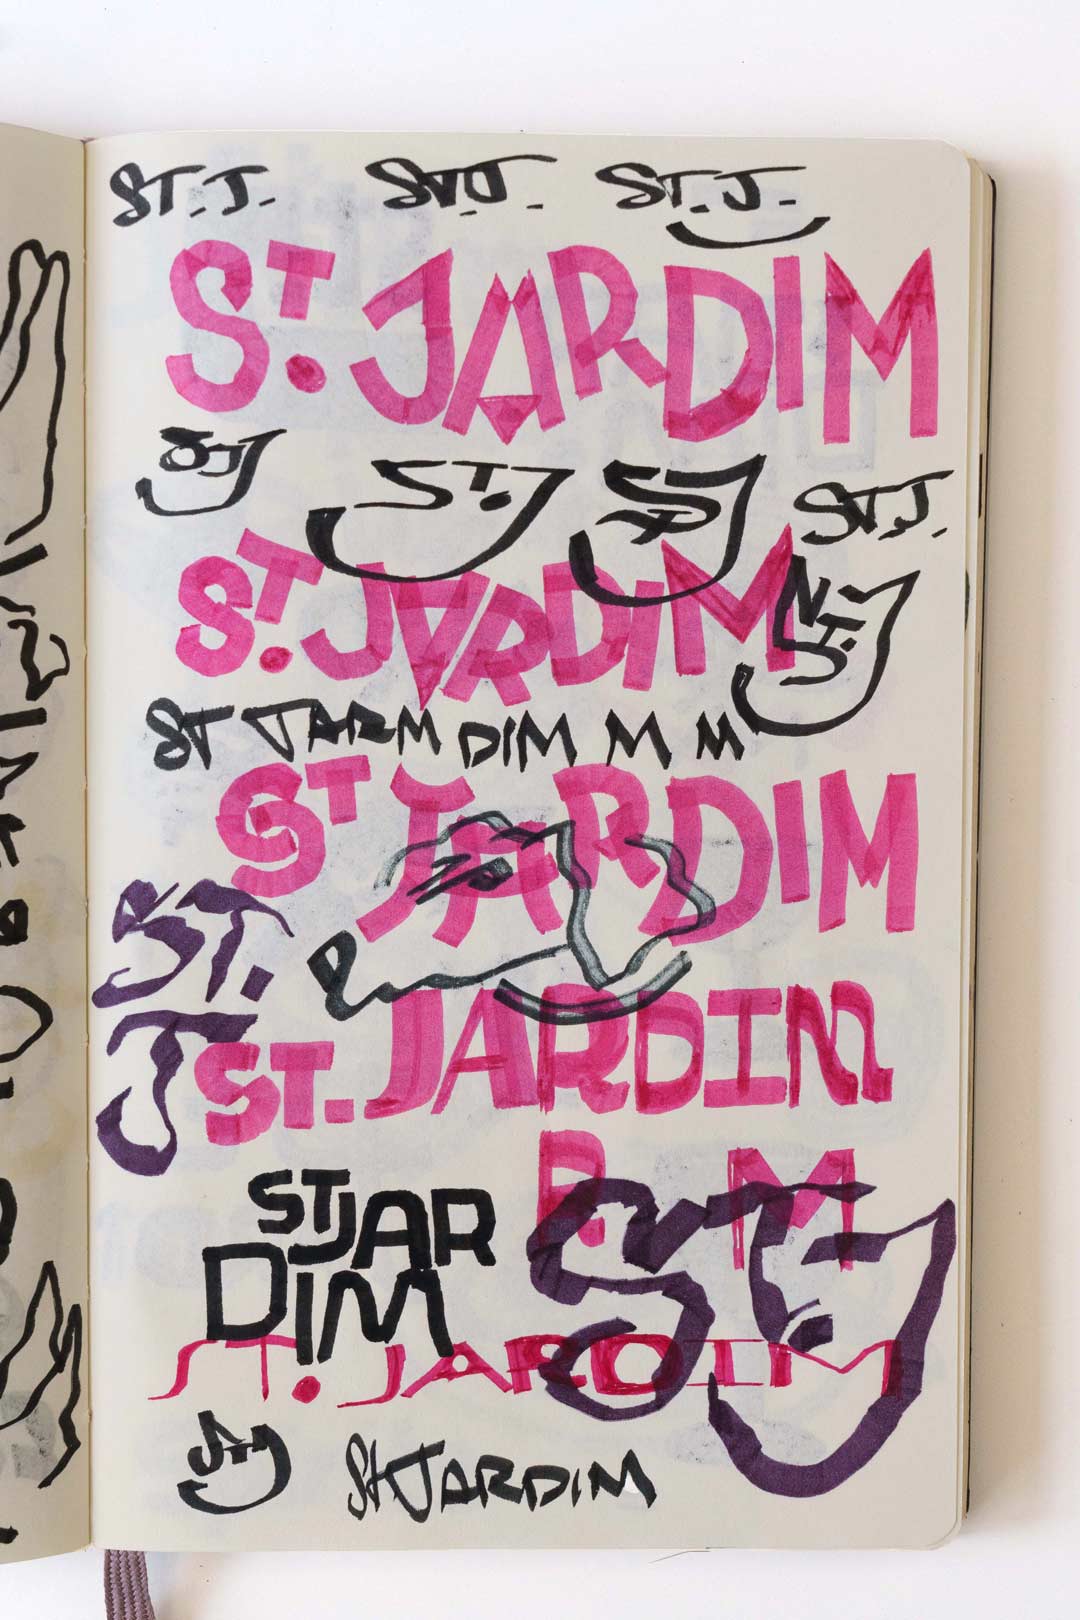 ST. J. ST.J. ST. J.
ST. JARDIM
STJ ST.J STJ ST.J.
ST. JARDIM
ST.J
ST JARM DIM M M
ST JARDIM
ST.
J
ST. JARDIM
R M
STJAR
DIM
STJ
ST. JARDIM
STJ STJARDIM